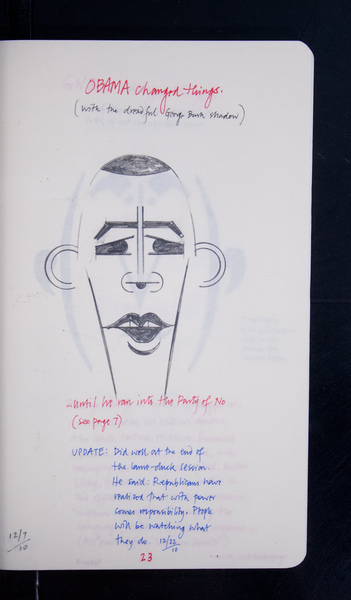 OBAMA changed things.
(with the dreadful George Bush shadow)
...until he ran into the Party of No
(see page 7)
UPDATE: Did well at the end of
the lame-duck session.
He said: Republicans have
realized that with power
comes responsibility. People
will be watching what
they do. 12/22/10
12/7/10
23